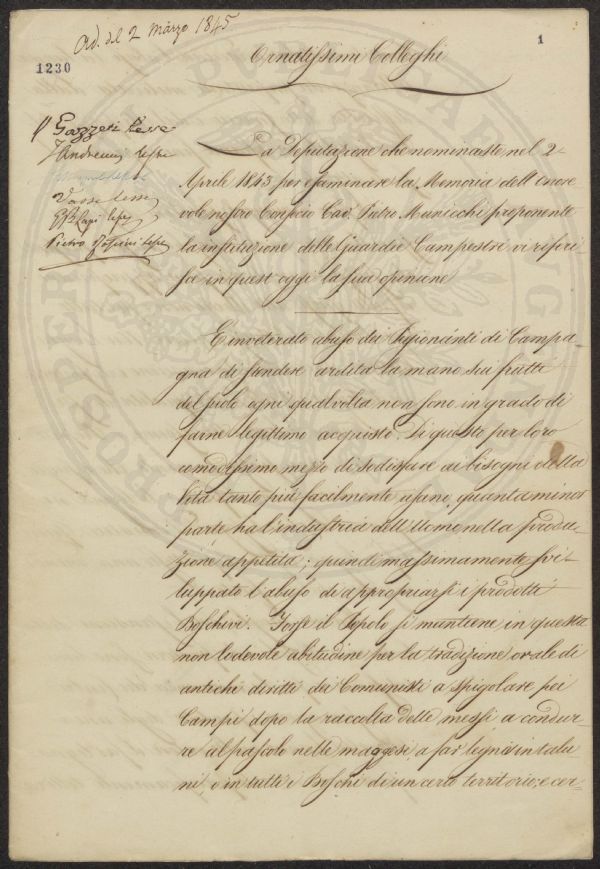 Ad. del 2 Marzo 1845
1
1230
Ornatissimi Colleghi
Gazzeri
La Deputazione che nominaste nel 2
Aprile 1843 per esaminare la Memoria dell'onore-
vole nostro Consocio Cav. Pietro Municchi proponente
la instituzione delle Guardie Campestri vi referi-
sce in quest'oggi la sua opinione
È inveterato abuso dei Pigionanti di Campa-
gna di stendere ardita la mano sui frutti
del suolo ogni qualvolta non sono in grado di
farne legittimo acquisto. Di questo per loro
comodissimo mezzo di sodisfare ai bisogni della
Vita tanto più facilmente usano, quanta minor
parte ha l'industria dell'Uomo nella produ-
zione appetita; quindi massimamente svi-
luppato l'abuso di appropriarsi i prodotti
Boschivi. Forse il Popolo si mantiene in questa
non lodevole abitudine per la tradizione orale di
antichi diritti dei Comunisti a spigolare pei
Campi dopo la raccolta delle messi a condur-
re al pascolo nelle maggesi, a far legna in talu-
ni, o in tutti i Boschi di un certo territorio; e cer-